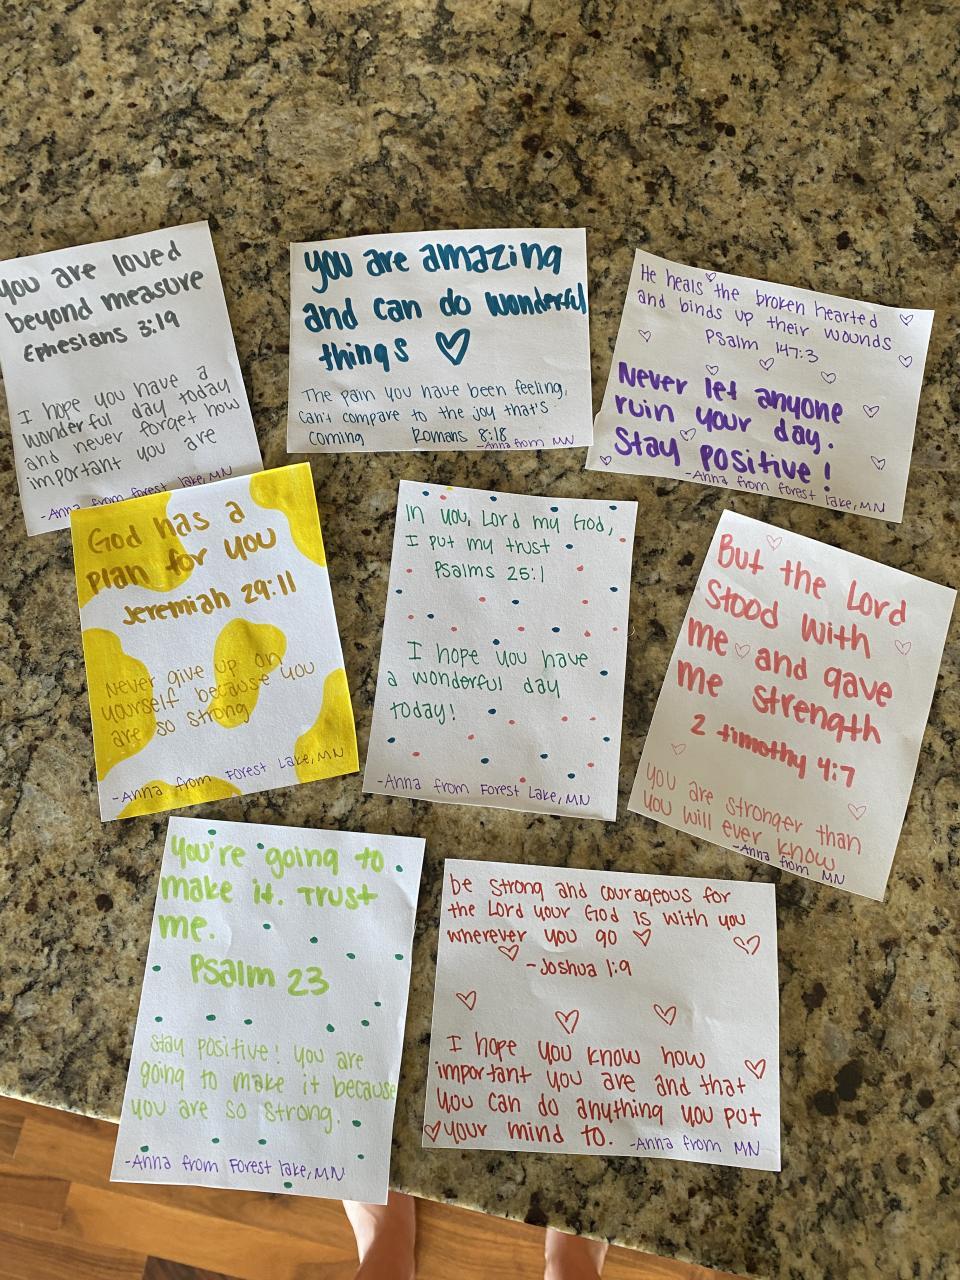 you are loved
beyond measure
Ephesians 3:19
I hope you have a
wonderful day today
and never forget how
important you are
-Anna from Forest lake, MN
you are amazing
and can do wonderful
things
The pain you have been feeling,
can't compare to the joy that's
coming Romans 8:18
-Anna from MN
He heals the broken hearted
and binds up their wounds
Psalm 147:3
Never let anyone
ruin your day.
Stay positive!
-Anna from Forest lake, MN
God has a
plan for you
Jeremiah 29:11
Never give up on
yourself because you
are so strong
-Anna from Forest Lake, MN
In you, Lord my God,
I put my trust
Psalms 25:1
I hope you have
a wonderful day
today!
-Anna from Forest Lake, MN
But the Lord
Stood with
me and gave
me strength
2 timothy 4:7
you are stronger than
you will ever know
-Anna from MN
You're going to
make it. Trust
me.
Psalm 23
Stay positive! you are
going to make it because
you are so strong.
-Anna from Forest lake, MN
be strong and courageous for
the Lord your God is with you
wherever you go
-Joshua 1:9
I hope you know how
important you are and that
you can do anything you put
your mind to. -Anna from MN